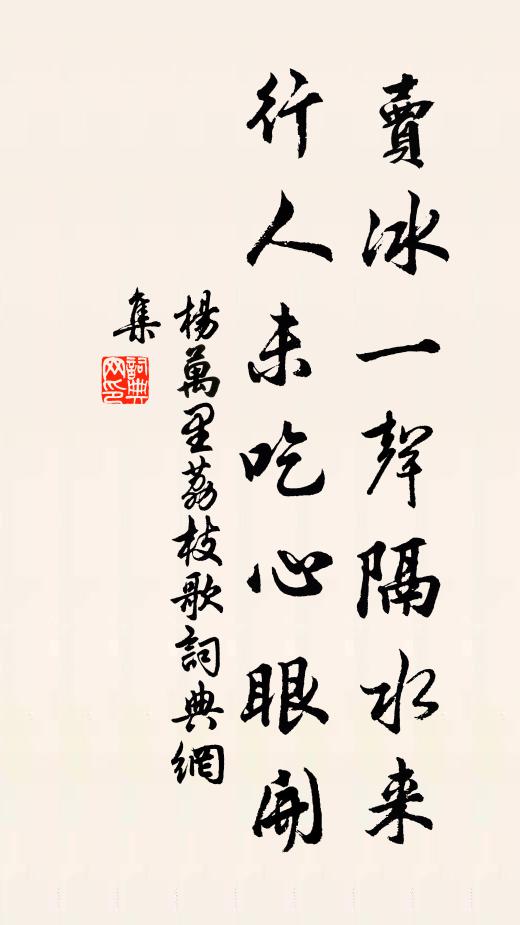 賣冰一聲隔水来
行人未吃心眼開
楊萬里荔枝歌詞典網
集
詞典网印